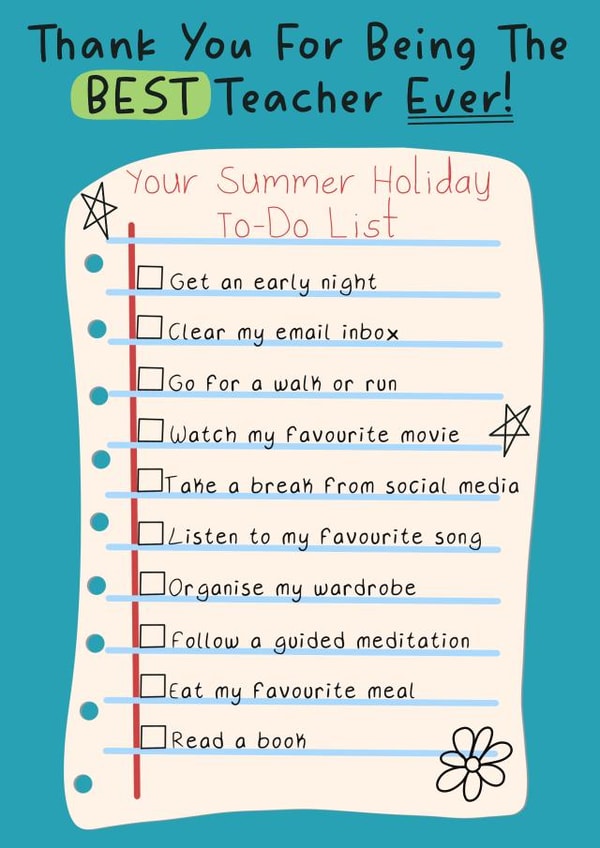 Thank You For Being The
BEST Teacher Ever!
Your Summer Holiday
To-Do List
Get an early night
Clear my email inbox
Go for a walk or run
Watch my favourite movie
Take a break from social media
Listen to my favourite song
Organise my wardrobe
Follow a guided meditation
Eat my favourite meal
Read a book